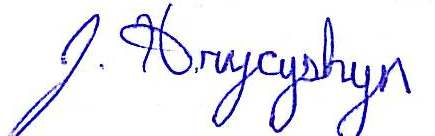 J. Hrycyshyn